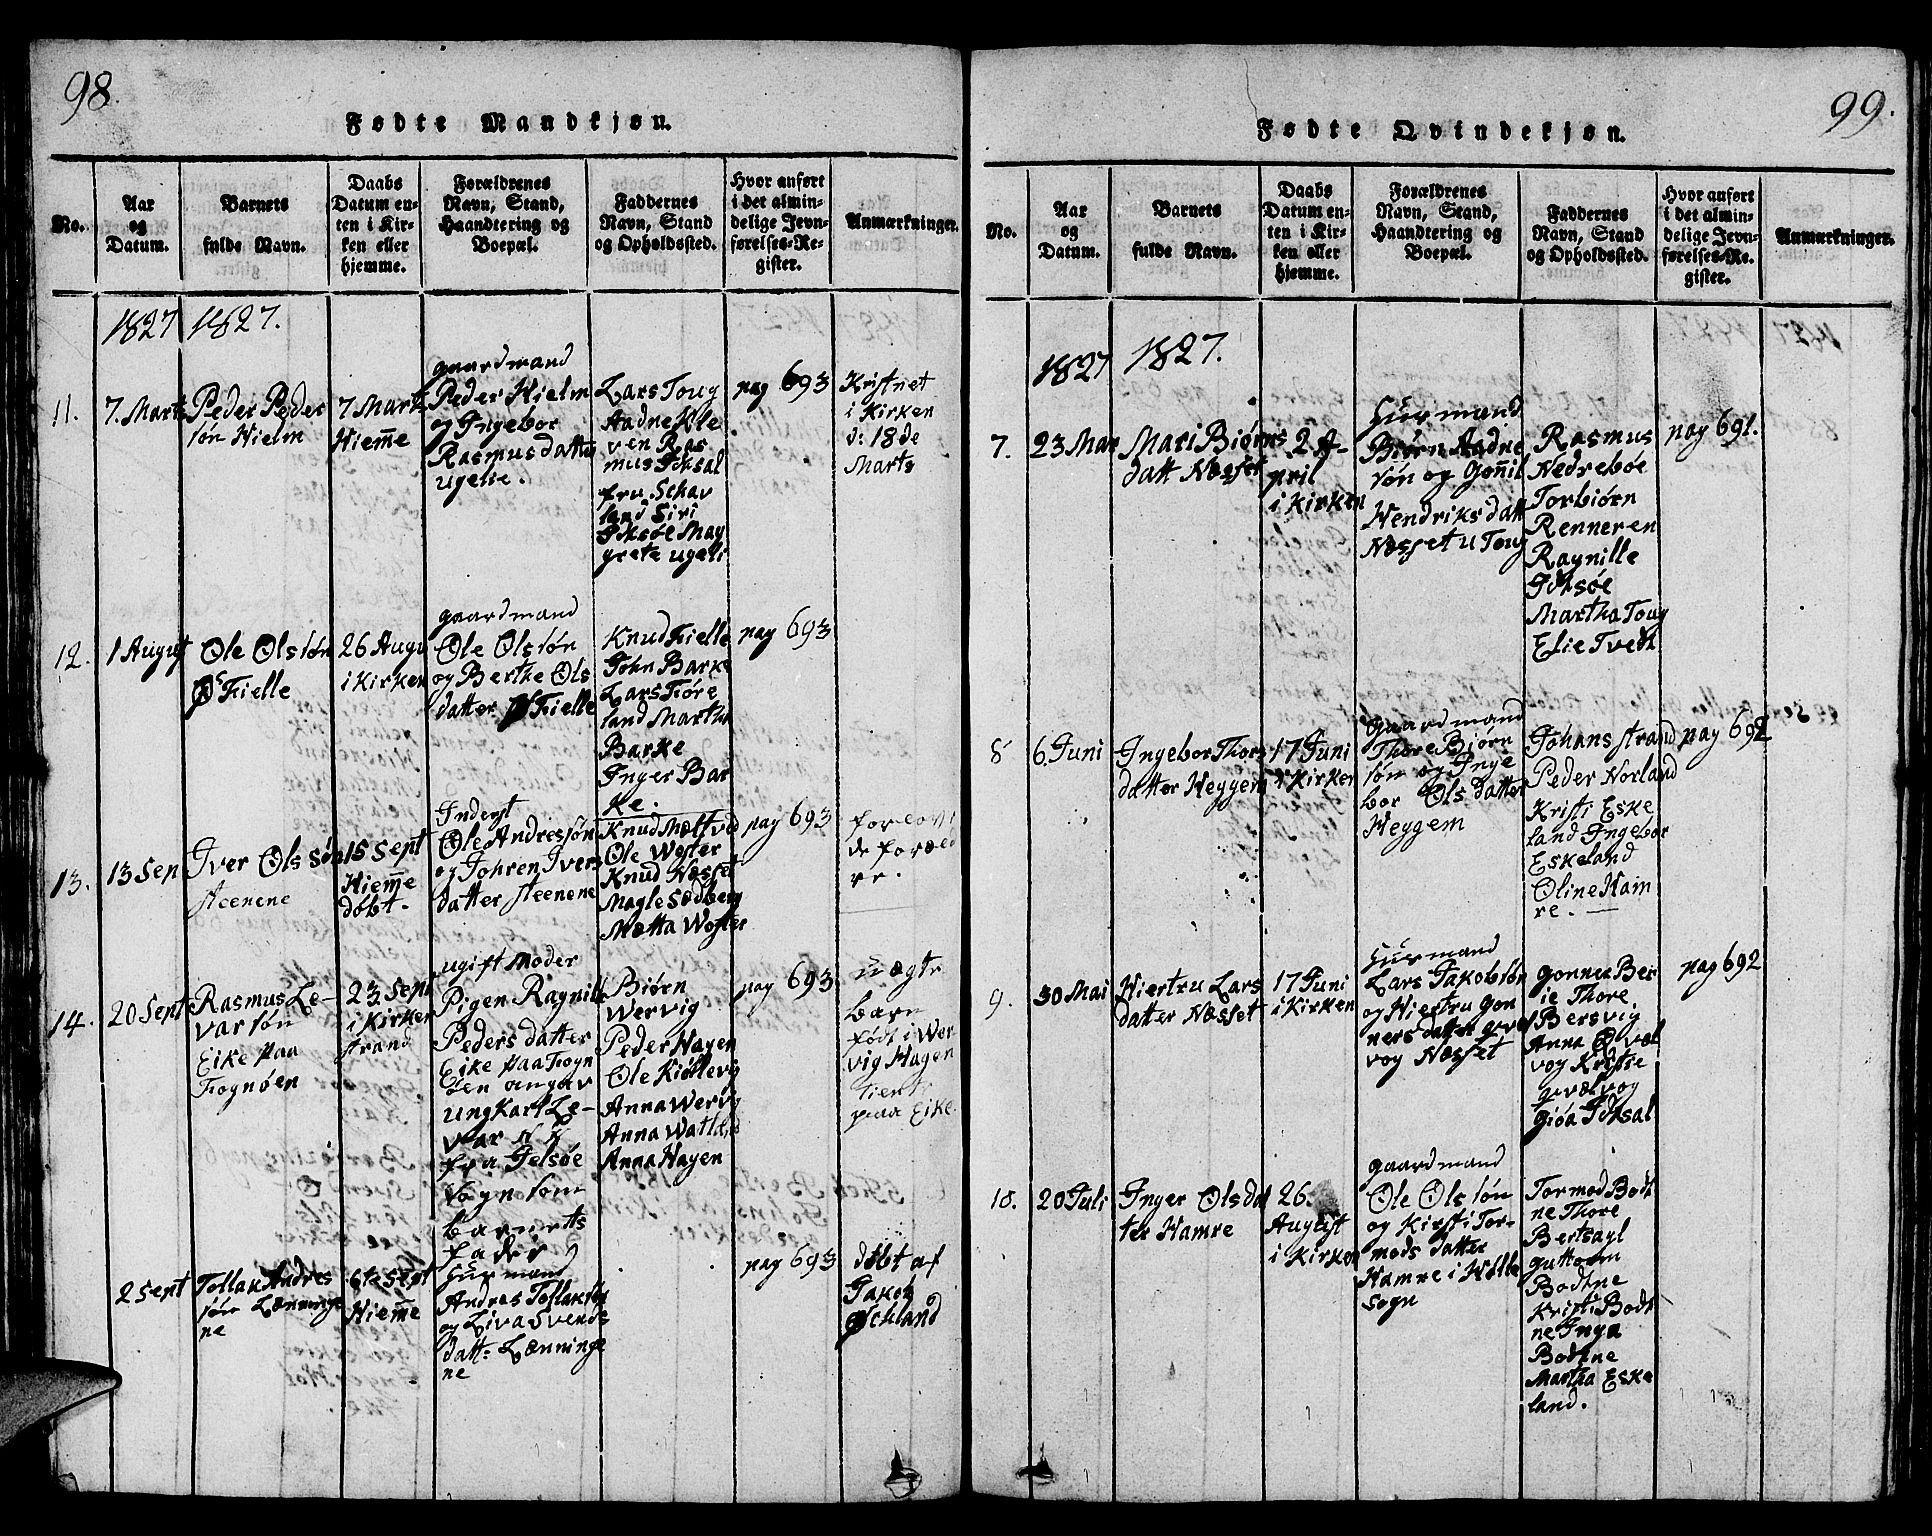 98.
Fødte Mandkjøn.
No.
Aar
og
Datum.
Barnets
fulde Navn.
Daabs
Datum en-
ten i Kir-
ken eller
hjemme.
Forældrenes
Navn, Stand,
Haandtering og
Boepæl.
Faddernes
Navn, Stand
og Opholdssted.
Hvor anført
i det almin-
delige Jevn-
førelses-Re-
gister.
Anmærkninger.
1827 1827.
11.
7. Marts
Peder Peder
søn Hielm
7 Marts
Hiem̅e
gaardmand
Peder Hielm
og Ingebor
Rasmusdatter
ugelie.
Lars Toug
Aadne Kle
ven Ras
mus Idsal
fru. Schav
land Siri
Idsøe Mag
grete ugeli
pag 693
Kristnet
i Kirken
d: 18de
Marts
12.
1 August
Ole Olssøn
Fielle
26 Augu
i Kirken
gaardmand
Ole Olssøn
og Berthe Ols
datter Fielle
Knud Fielle
John Barke
Lars Tøre
land Martha
Barke
Inger Bar
ke.
pag 693
13.
13 Sept
Iver Olssøn
steenene
15 Sept
Hiem̅e
døbt.
Inderst
Ole Andressøn
og Johren Ivers
datter steenene
Knud Mæltvid
Ole Woster
Knud Næsset
Magle Sædberg
Metta Woster
pag 693
forlovt
de foræld
re.
14.
20 Sept
Rasmus Le-
varsøn
Eike paa
Fognøen
23 Sept
i Kirken
strand
ugift Moder
Pigen Ragnille
Peders datter
Eike paa Fogn
øen angav
ungkarl Le-
var N N
fra Jelsøe
Sogn som
barnets
fader
Biørn
Wervig
Peder Hagen
Ole Kiøllevig
Anna Wervig
Anna Watland
Anna Hagen
pag 693
uægte
barn
født i Wer
vig Hagen
tient
paa Eike.
2 Sept
Tollak Andres
søn Lænninge
ne
6te Sept
Hiem̅e
Huusmand
Andres Tollaksøn
og Liva Svends
datt: Lænninge
ne
pag 693
døbt af
Jakob
Øchland
99.
Fødte Qvindekjøn.
No.
Aar
og
Datum.
Barnets
fulde Navn.
Daabs
Datum en-
ten i Kir-
ken eller
hjemme.
Forældrenes
Navn, Stand,
Haandtering og
Boepæl.
Faddernes
Navn, Stand
og Opholdssted.
Hvor anført
i det almin-
delige Jevn-
førelses-Re-
gister.
Anmærkninger.
1827 1827.
7.
23 Mar
Mari Biørns
datt Næsset
2 A-
pril
i Kirken
Huusmand
Biørn Aadne
søn og Gom̅il
Hendriksdatt
Næsset u Toug
Rasmus
Nedrebøe
Torbiørn
Renneren
Ragnille
Idsøe
Martha Toug
Elie Tvedt
pag 691.
8
6. Juni
Ingebor Thors
datter Heggem
17 Juni
i Kirken
Gaardmand
Thore Biørn
søn og Inge
bor Olsdatter
Heggem
Johans strand
Peder Norland
Kristi Eske
land Ingebor
Eskeland
Oline Ham
re.
pag 692
9.
30 Mai
Hiertru Lars
datter Næsset
17 Juni
i Kirken
Huusmand
Lars Jakobsøn
og Hiertru Gon
ners datter qvel
vog Næsset
Gonner Ber
ie Thore
Bersvig
Anna Qvæl
vog Kristie
qvælvog
Giøa Idsal
pag 692
10.
20 Juli
Inger Olsdat
ter Hamre
26.
August
i Kirken
gaardmand
Ole Olssøn
og Kirsti Tor-
mods datter
Hamre i Hølle
Sogn
Tormod Bodt
ne Thore
Bertsagl
guttorm
Bodtne
Kristi Bodt
ne Inga
Bodtne
Martha Eske
land.